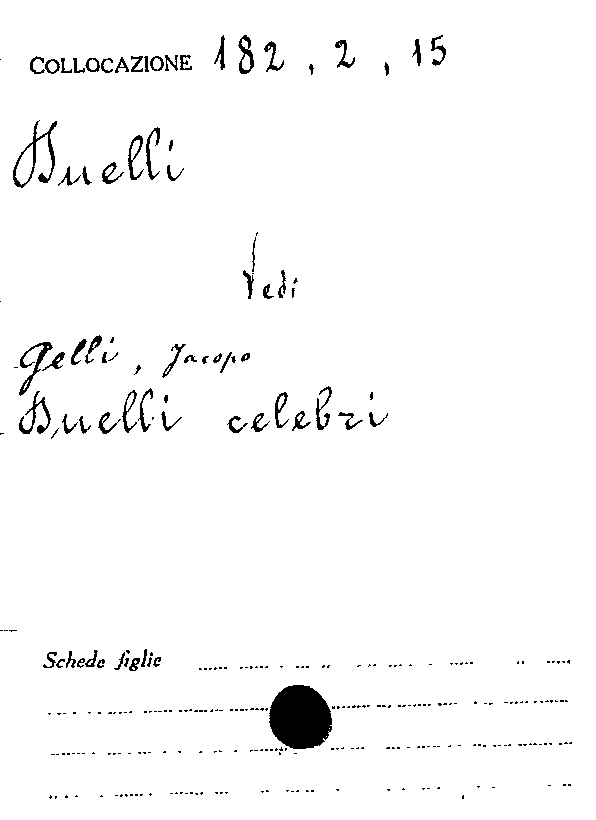 COLLOCAZIONE 182, 2, 15
Duelli
Vedi
Gelli, Jacopo
Duelli celebri
Schede figlie